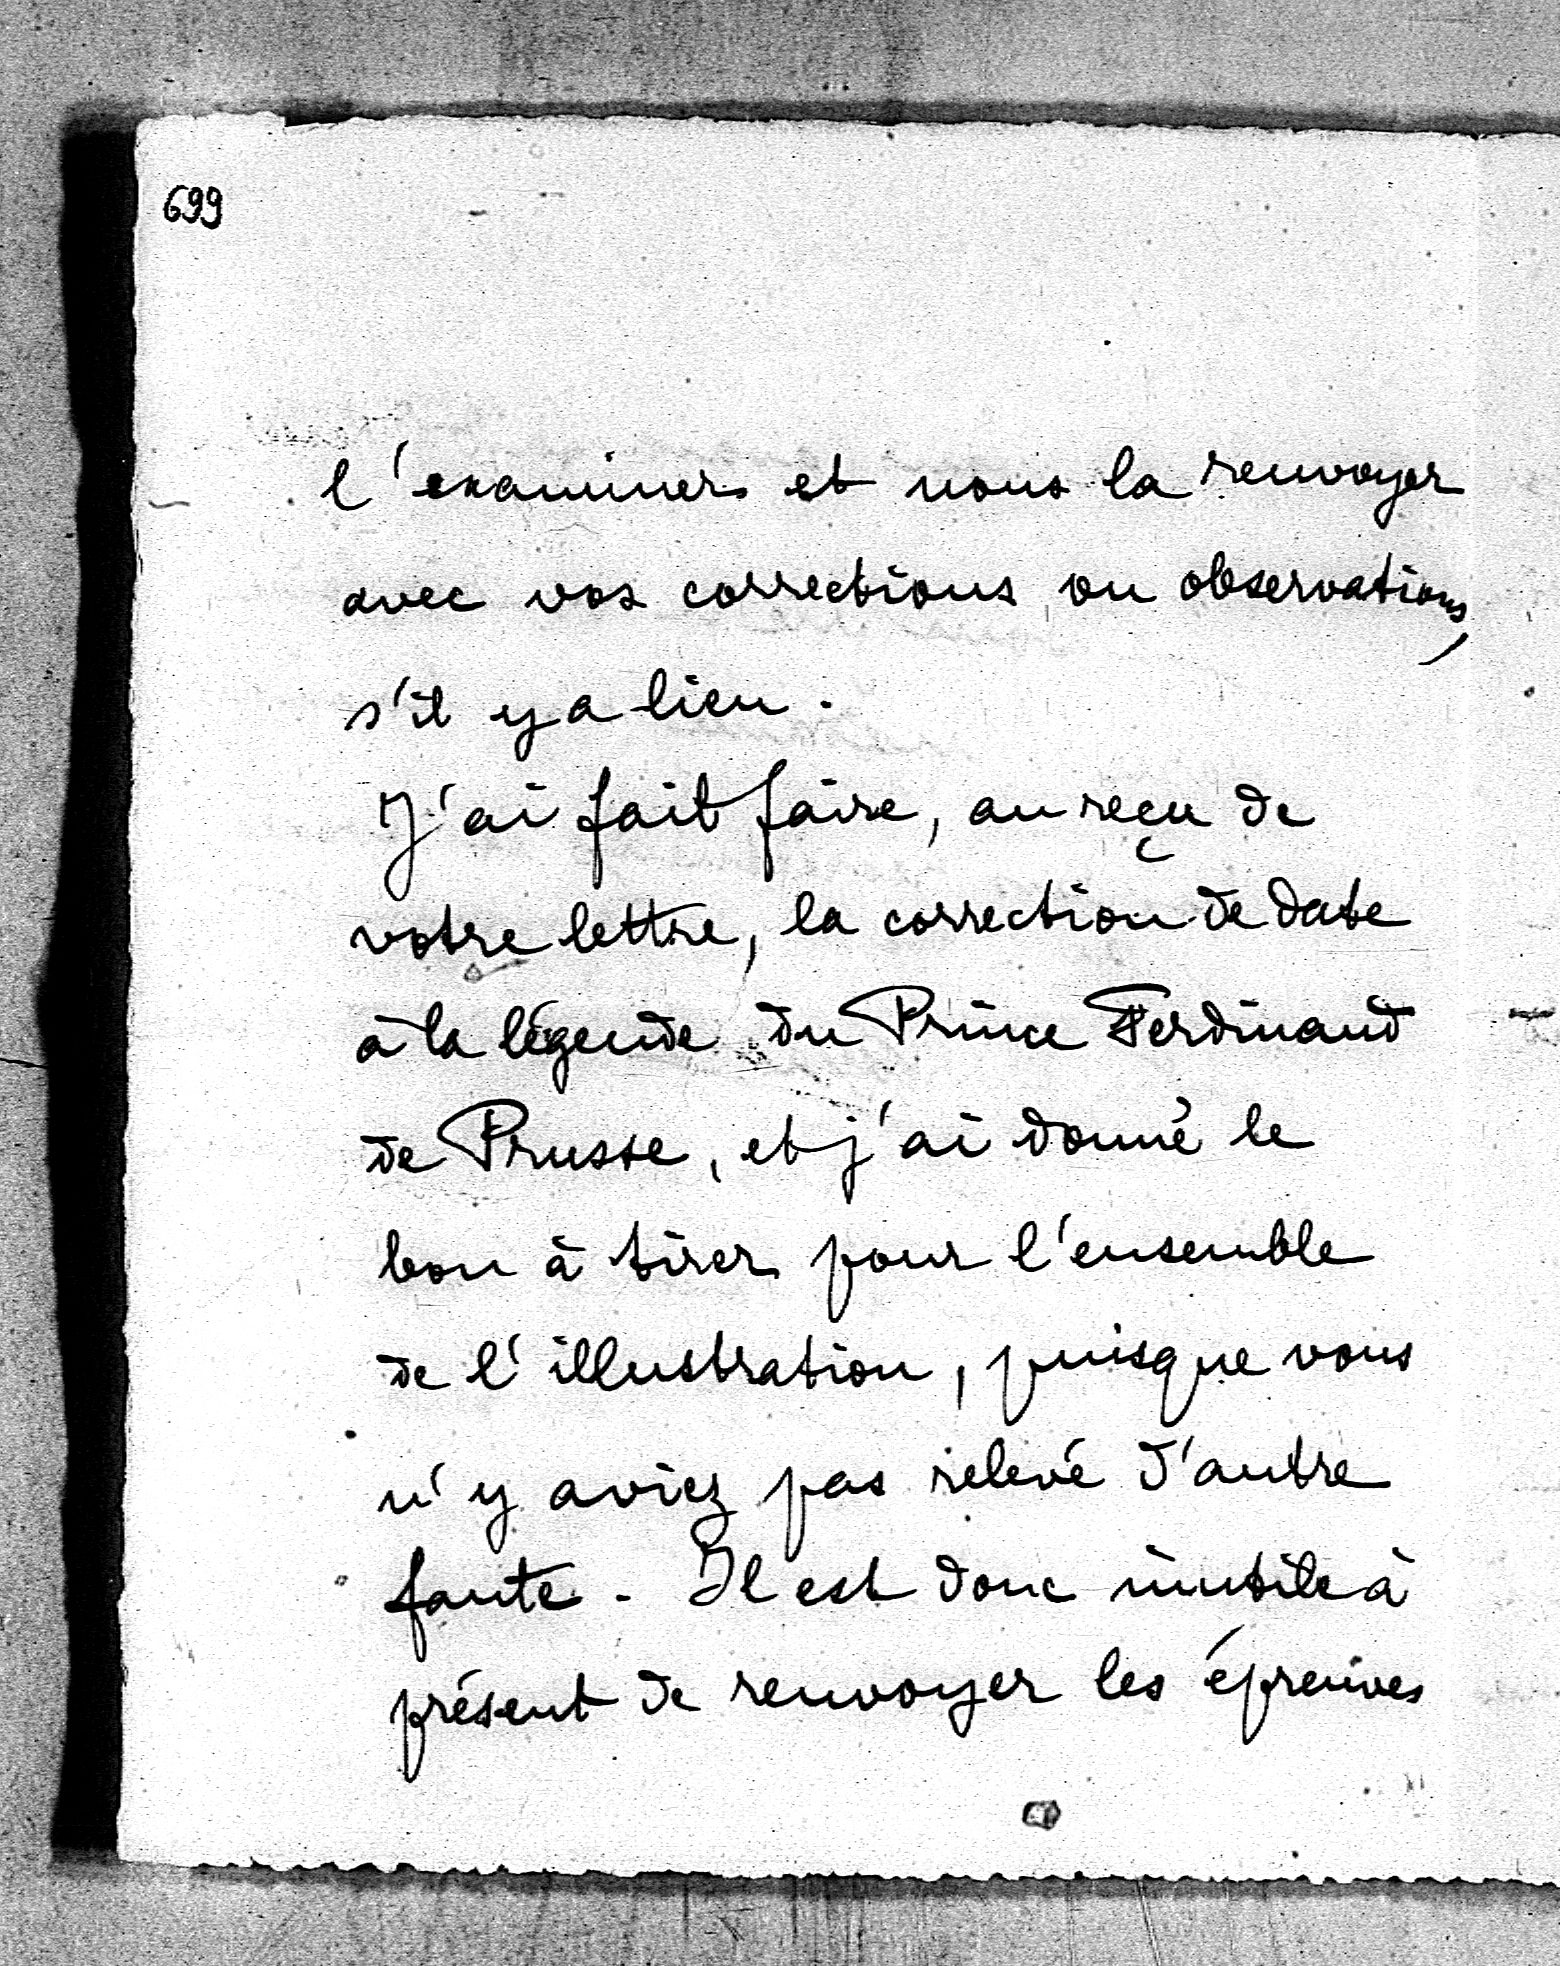 699
l'examiner et nous la renvoyer
avec vos corrections ou observations,
s'il y a lieu.
J'ai fait faire, au reçu de
votre lettre, la correction de date
à la légende du Prince Ferdinand
de Prusse, et j'ai donné le
bon à tirer pour l'ensemble
de l'illustration, puisque vous
n'y aviez pas relevé d'autre
faute. Il est donc inutile à
présent de renvoyer les épreuves